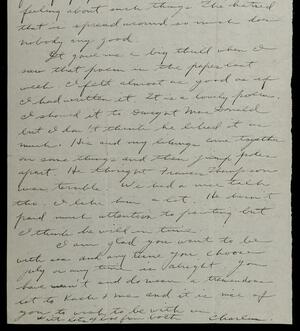 feeling about such things. The hatred
that is spread around so much does
nobody any good.
It gave me a big thrill when I
saw that poem in the paper last
week. I felt almost as good as if
I had written it. It is a lovely poem.
I showed it to Dwight Mac Donald
but I don't think he liked it so
much. He and my things come together
on some things and then jump poles
apart. He thought Francis Thompson
was terrible. We had a nice talk
tho. I like him a lot. He hasn't
paid much attention to poetry but
I think he will in time.
I am glad you want to be
with us and any time you choose
July or any time is alright. You
have meant and do mean a tremendous
lot to Kack & me and it is nice of
you to wish to be with us.
with lots of love from both Charles